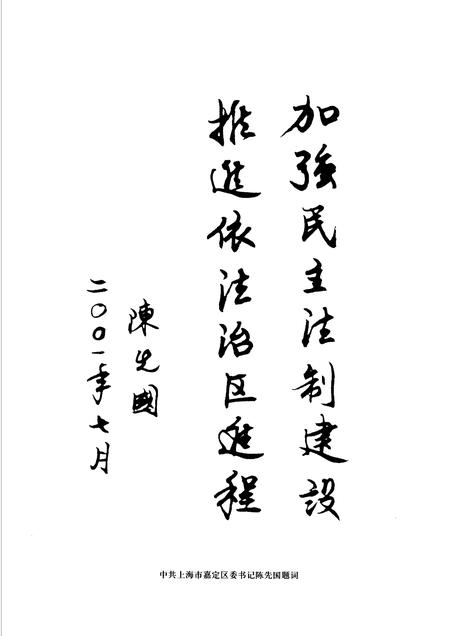 加強民主法制建設
推進依法治区進程
陳先國
二〇〇一年七月
中共上海市嘉定区委书记陈先国题词